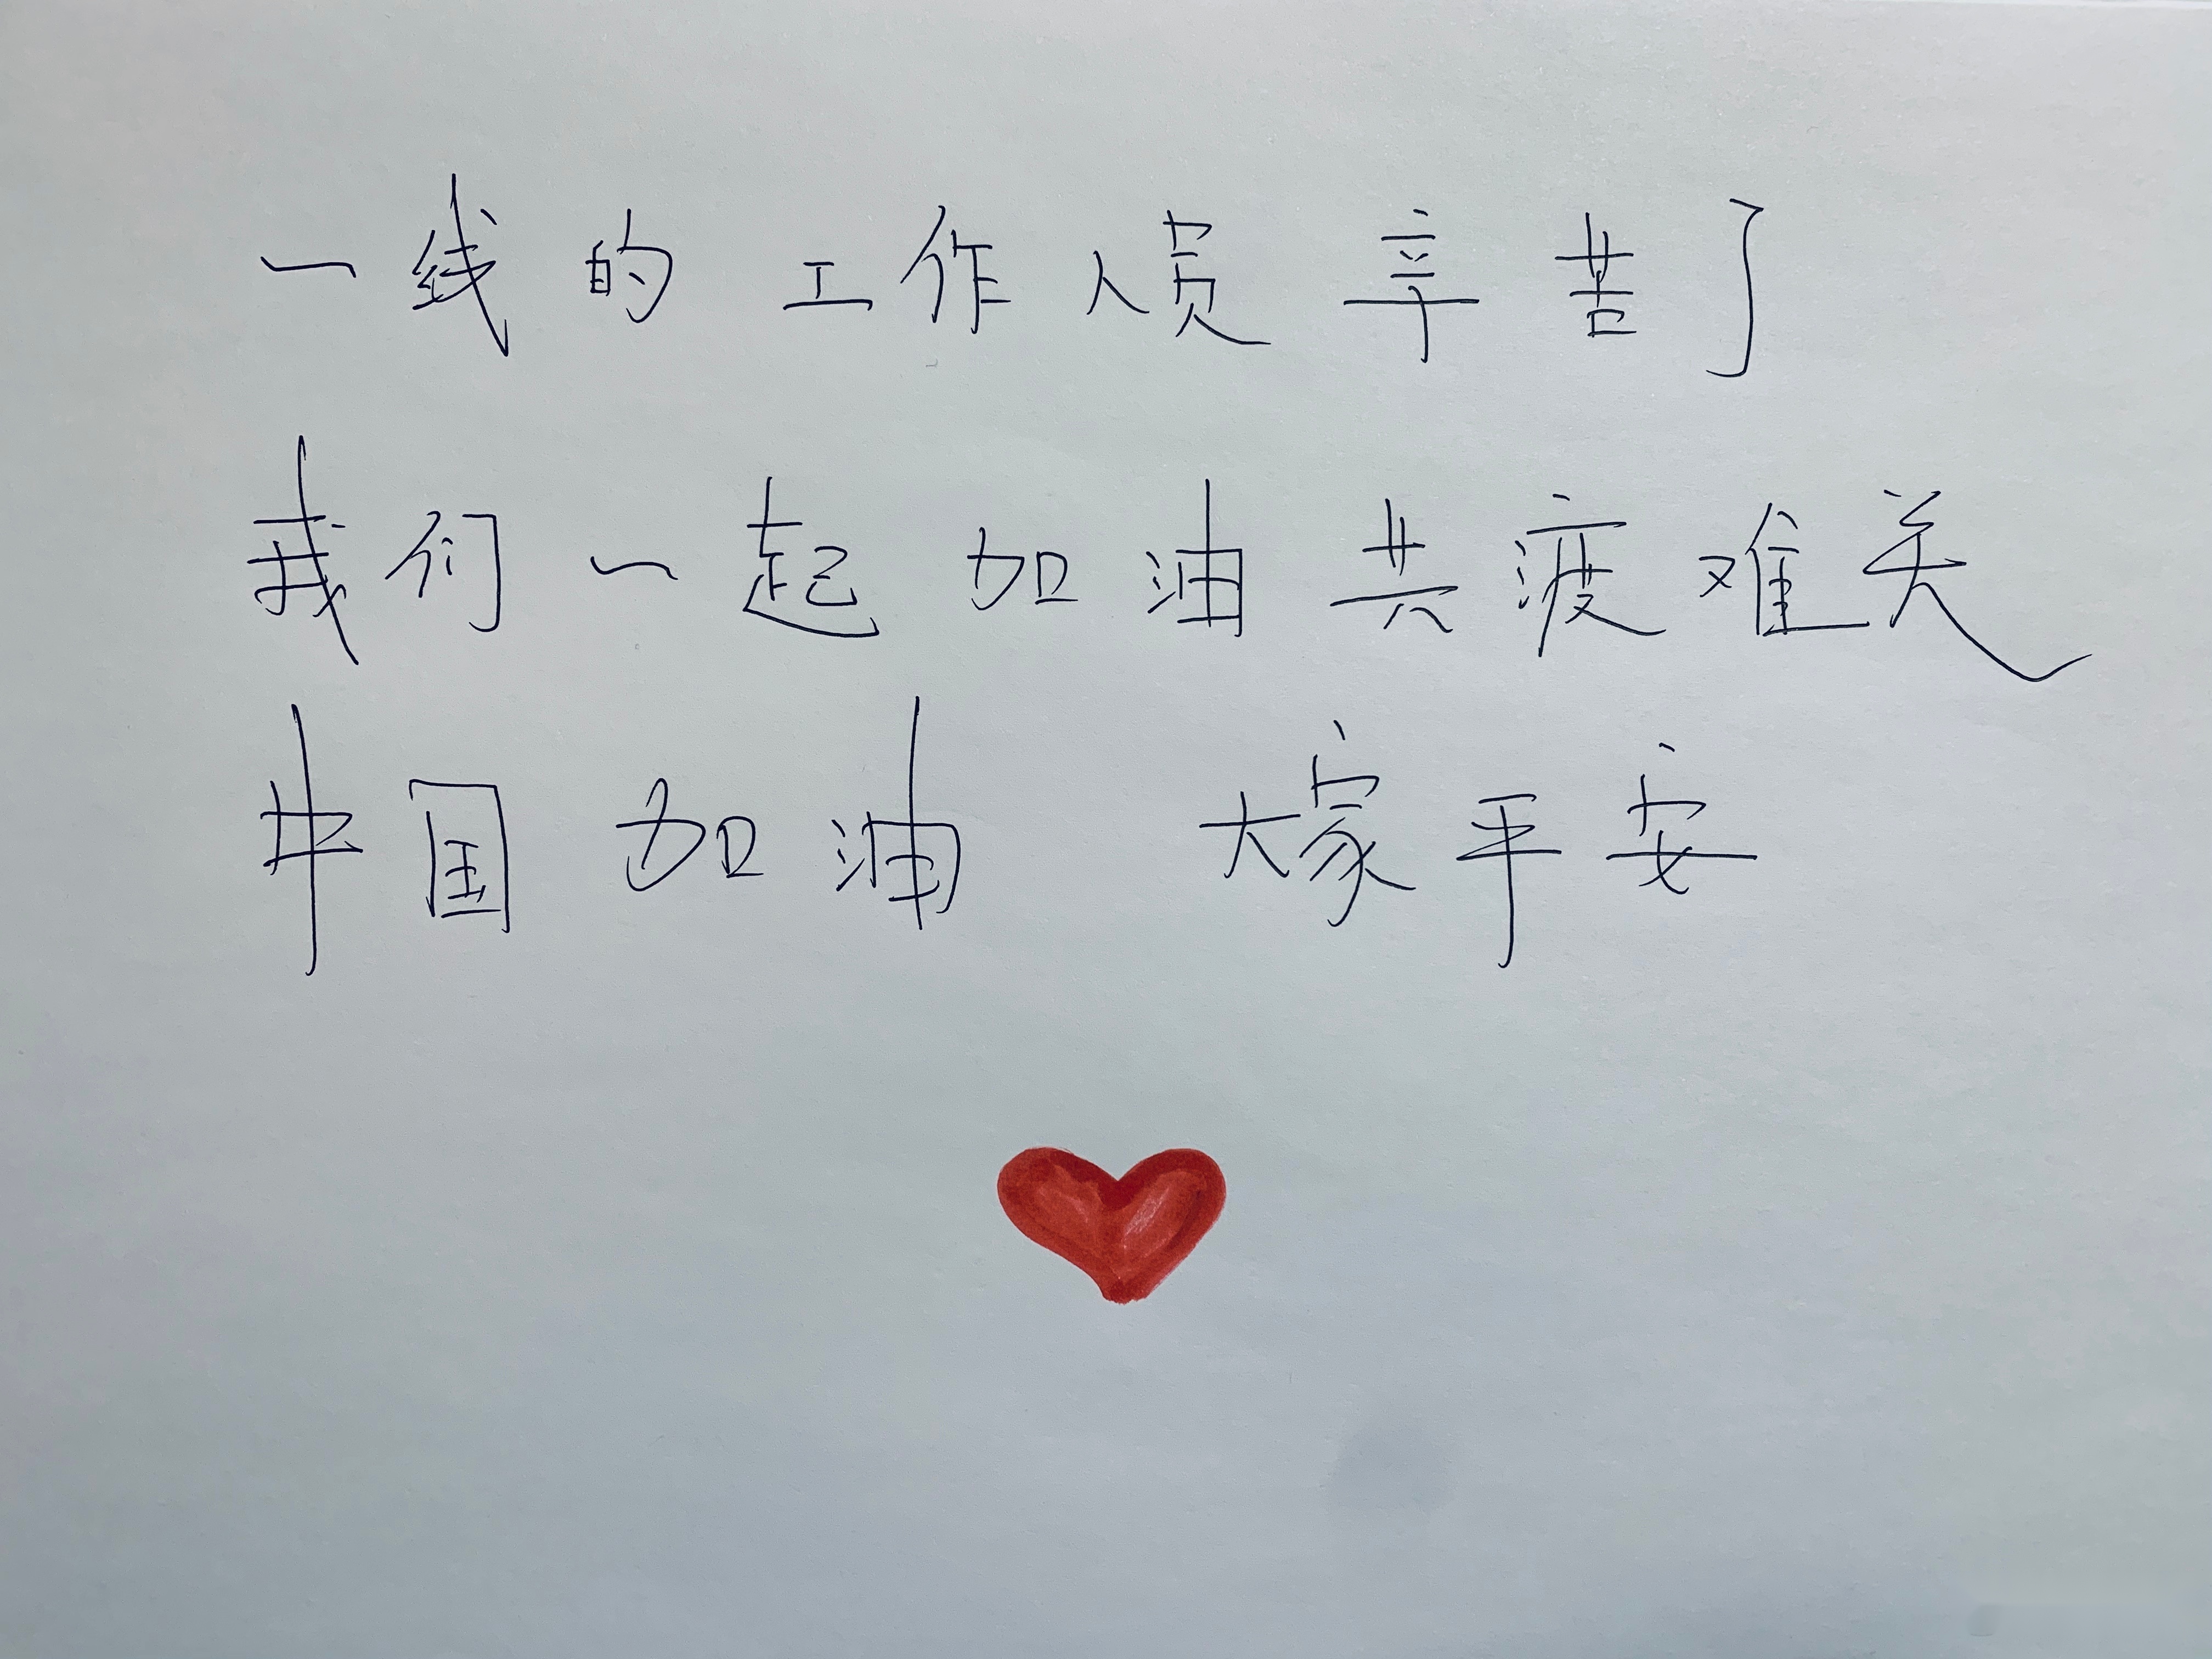 一线的工作人员辛苦了
我们一起加油共渡难关
中国加油 大家平安